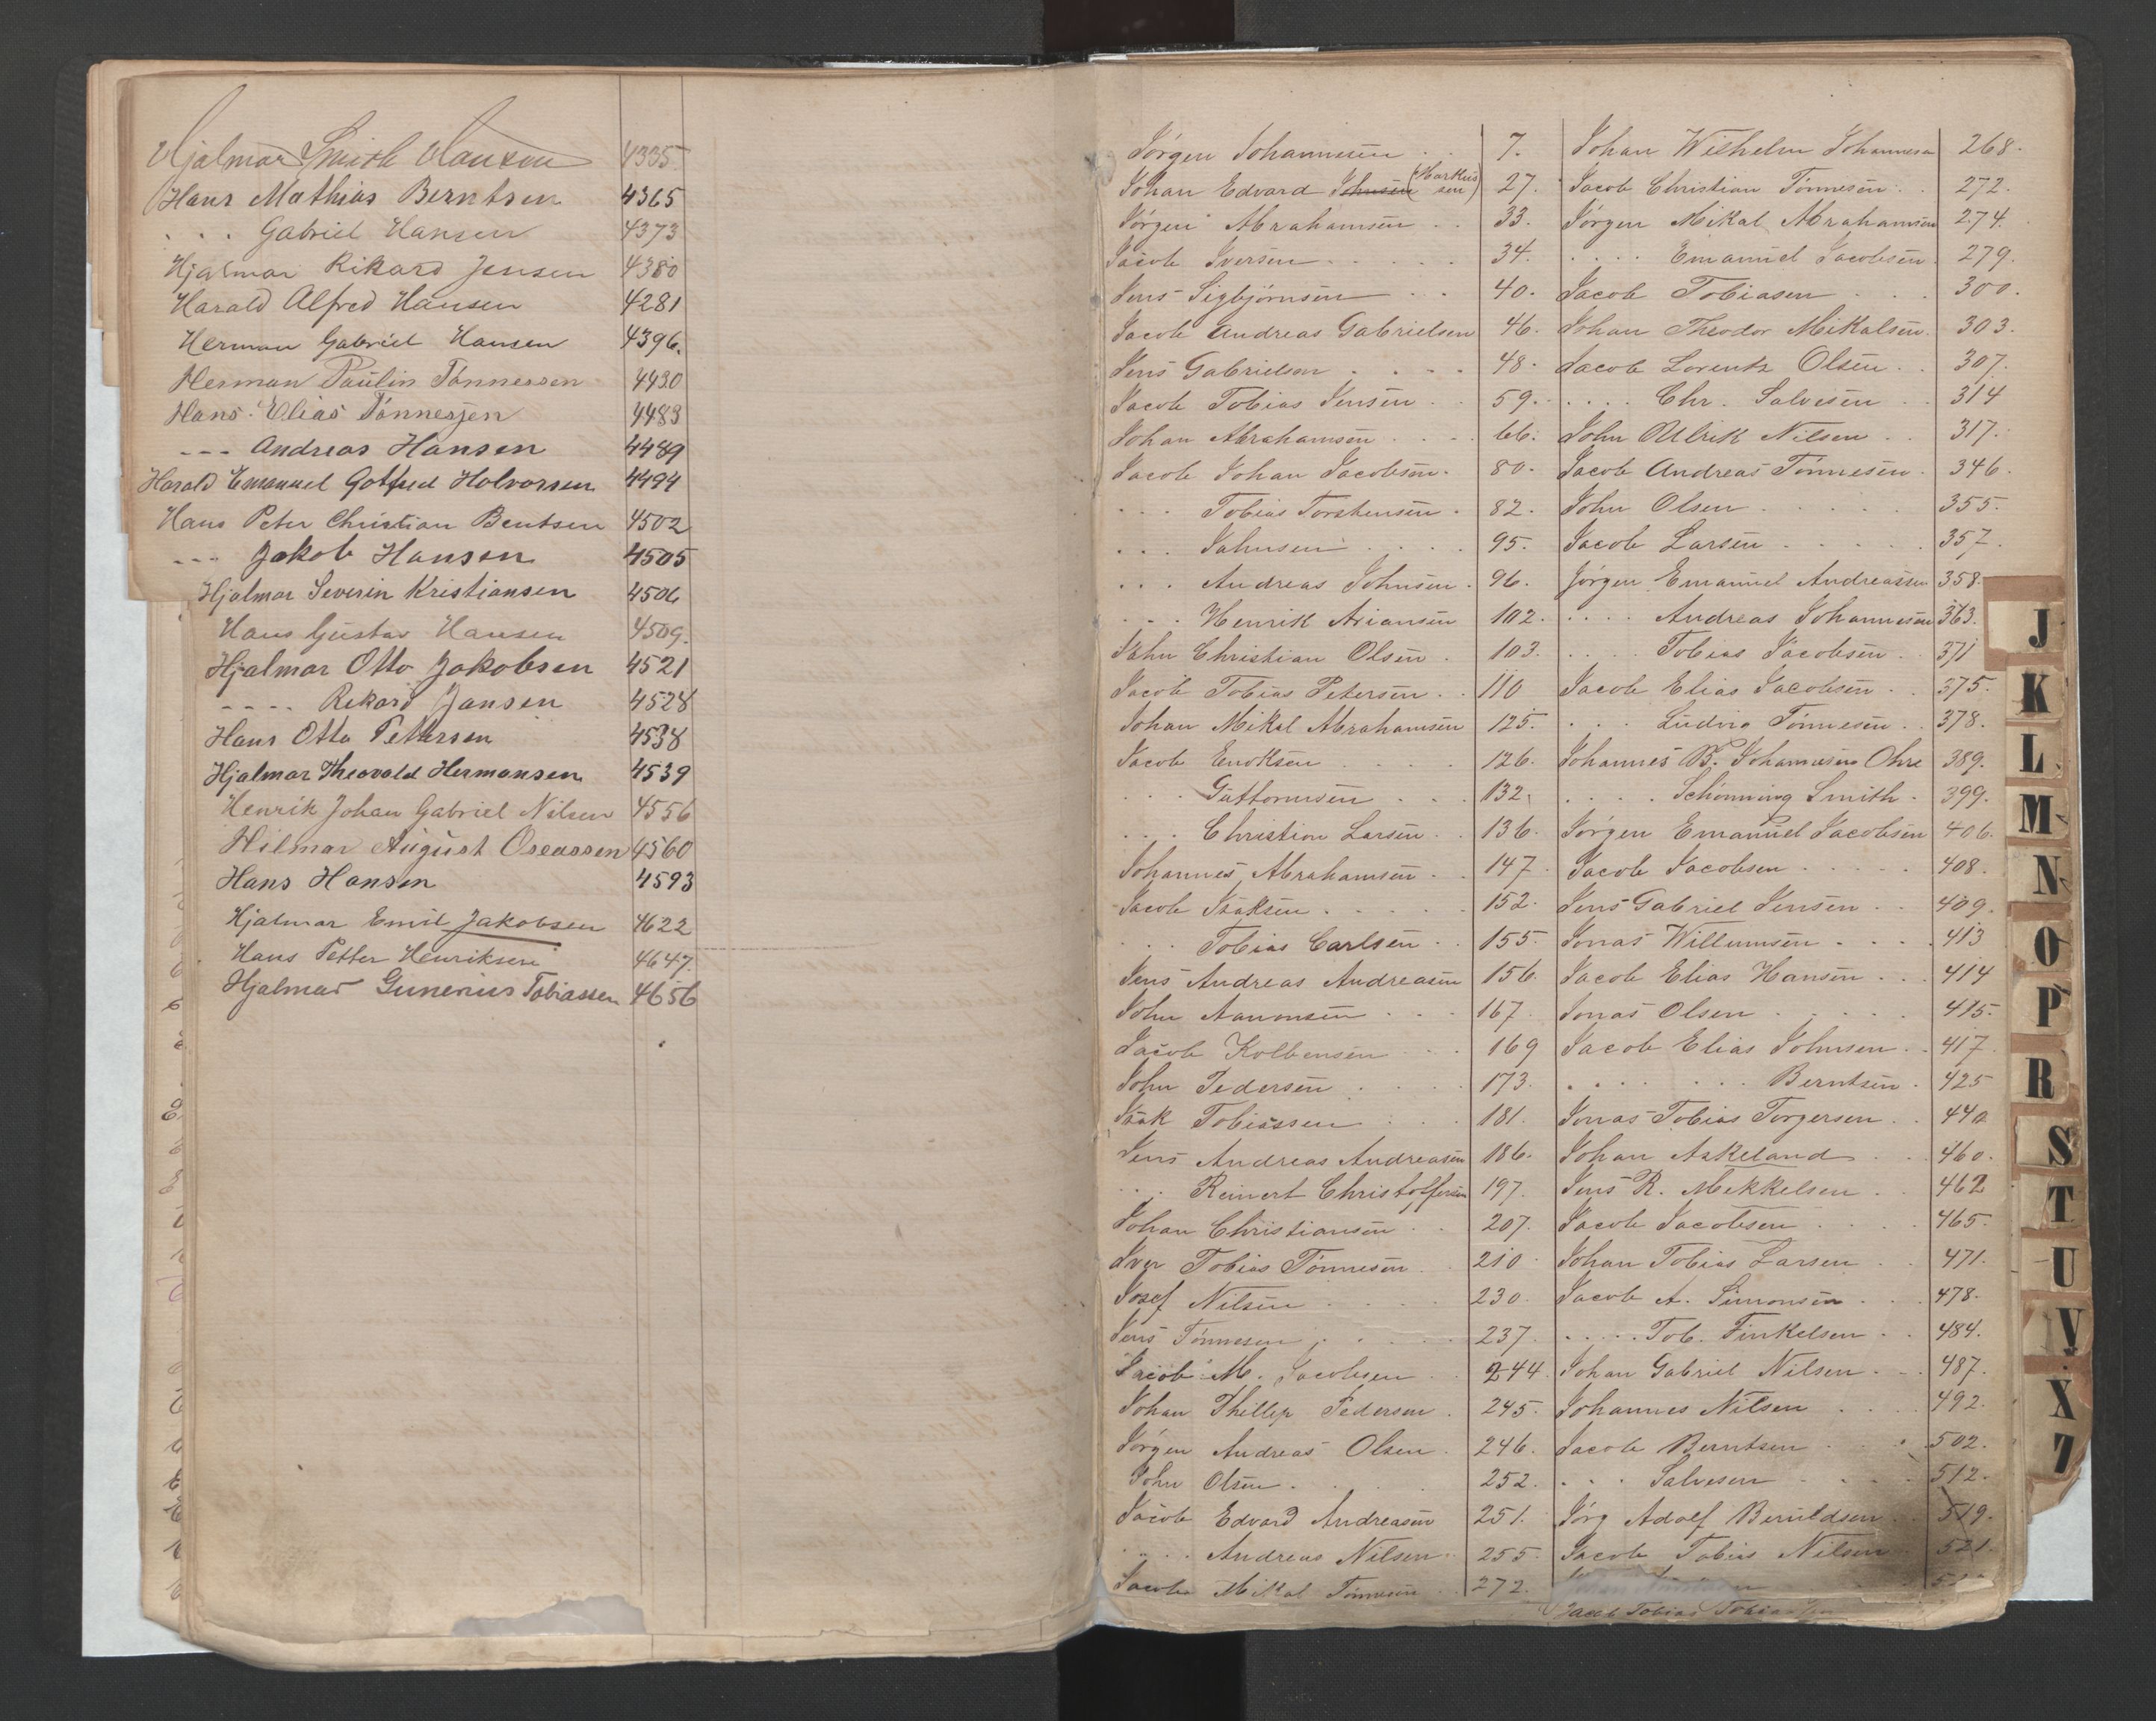 Hjalmar Smith Hansen 4335.
Hans Mathias Berntsen 4365
. . . Gabriel Hansen 4373
Hjalmar Rikard Jensen 4380
Harald Alfred Hansen 4281
Herman Gabriel Hansen 4396.
Herman Paulin Tønnessen 4430
Hans Elias Tønnessen 4483
--- Andreas Hansen 4489
Harald Emanuel Gotfred Halvorsen 4494
Hans Peter Christian Bentsen 4502
--- Jakob Hansen 4505
Hjalmar Severin Kristiansen 4506
Hans Gustav Hansen 4509.
Hjalmar Otto Jakobsen 4521
---- Rikard Jansen 4528
Hans Otto Pettersen 4538
Hjalmar Theovald Hermansen 4539
Henrik Johan Gabriel Nilsen 4556
Hilmar August Oseassen 4560
Hans Hansen 4593
Hjalmar Emil Jakobsen 4622
Hans Petter Henriksen 4647.
Hjalmar Gunerius Tobiassen 4656
Jørgen Johannesen . . 7.
Johan Edvard Johnsen (Markussen) 27.
Jørgen Abrahamsen . . 33.
Jacob Iversen . . . . . 34.
Jens Sigbjørnsen . . 40.
Jacob Andreas Gabrielsen 46.
Jens Gabrielsen . . . . 48.
Jacob Tobias Jensen . . 59.
Johan Abrahamsen . . . . 66.
Jacob Johan Jacobsen. 80.
. . . Tobias Torstensen . 82.
. . . Johnsen . . . . 95.
. . . Andreas Johnsen . 96.
. . . Henrik Ariansen 102.
John Christian Olsen . 103.
Jacob Tobias Petersen . . 110
Johan Mikal Abrahamsen 125.
Jacob Enoksen . . . . 126.
. . . Guttormsen . . . 132.
. . . Christian Larsen . 136.
Johannes Abrahamsen . . 147.
Jacob Isaksen . . . . . 152.
. . . Tobias Carlsen . . 155.
Jens Andreas Andreasen 156.
John Aanonsen . . . 167.
Jacob Kolbensen . . . 169
John Pedersen . . . . 173.
Isak Tobiassen . . . 181.
Jens Andreas Andreasen 186.
. . . Reinert Christoffersen 197.
Johan Christiansen . . 207.
Iver Tobias Tønnesen . . 210
Josef Nilsen . . . . 230.
Jens Tønnesen . . . . . 237.
Jacob M. Jacobsen . . 244.
Johan Phillip Pedersen . 245.
Jørgen Andreas Olsen . 246.
John Olsen . . . . . 252.
Jacob Edvard Andreasen 251.
. . . . Andreas Nilsen . . 255.
Jacob Mikal Tønnesen . . 272.
Johan Wilhelm Johannesen 268.
Jacob Christian Tønnesen . . 272.
Jørgen Mikal Abrahamsen 274.
. . . . Emanuel Jacobsen . 279.
Jacob Tobiasen . . . 300.
Johan Theodor Mikalsen . 303.
Jacob Lorentz Olsen . . 307.
. . . . Chr. Salvesen . . 314
John Ulrik Nilsen . . 317.
Jacob Andreas Tønnesen . 346.
John Olsen . . . . . 355.
Jacob Larsen . . . . . 357.
Jørgen Emanuel Andreassen 358.
. . . . Andreas Johannesen 363.
. . . . Tobias Jacobsen . . 371
Jacob Elias Jacobsen . . 375.
. . . Ludvig Tønnesen . . 378.
Johannes B. Johannesen Ohre 389.
. . . . Schønning Smith . 399.
Jørgen Emanuel Jacobsen 406.
Jacob Jacobsen . . . . . 408.
Jens Gabriel Jensen . . 409.
Jonas Willumsen . . . . 413
Jacob Elias Hansen . . . 414
Jonas Olsen . . . . . 415.
Jacob Elias Johnsen . . 417.
. . . . . . . Berntsen . 425
Jonas Tobias Torgersen . . 440
Johan Askeland . . . 460.
Jens R. Mekkelsen . . 462
Jacob Jacobsen . . . . 465.
Johan Tobias Larsen . . 471.
Jacob A. Simonsen . . . 478.
. . . . . Tob. Finkelsen . . 484.
Johan Gabriel Nilsen . . . 487.
Johannes Nilsen . . . . 492.
Jacob Berntsen . . . 502.
. . . Salvesen . . . . 512.
Jørg Adolf Beruldsen . . 519.
Jacob Tobias Nilsen . . 521.
Jacob Tobias Tobiassen
J
K
L
M
N
O
P
R
S
T
U
V
X